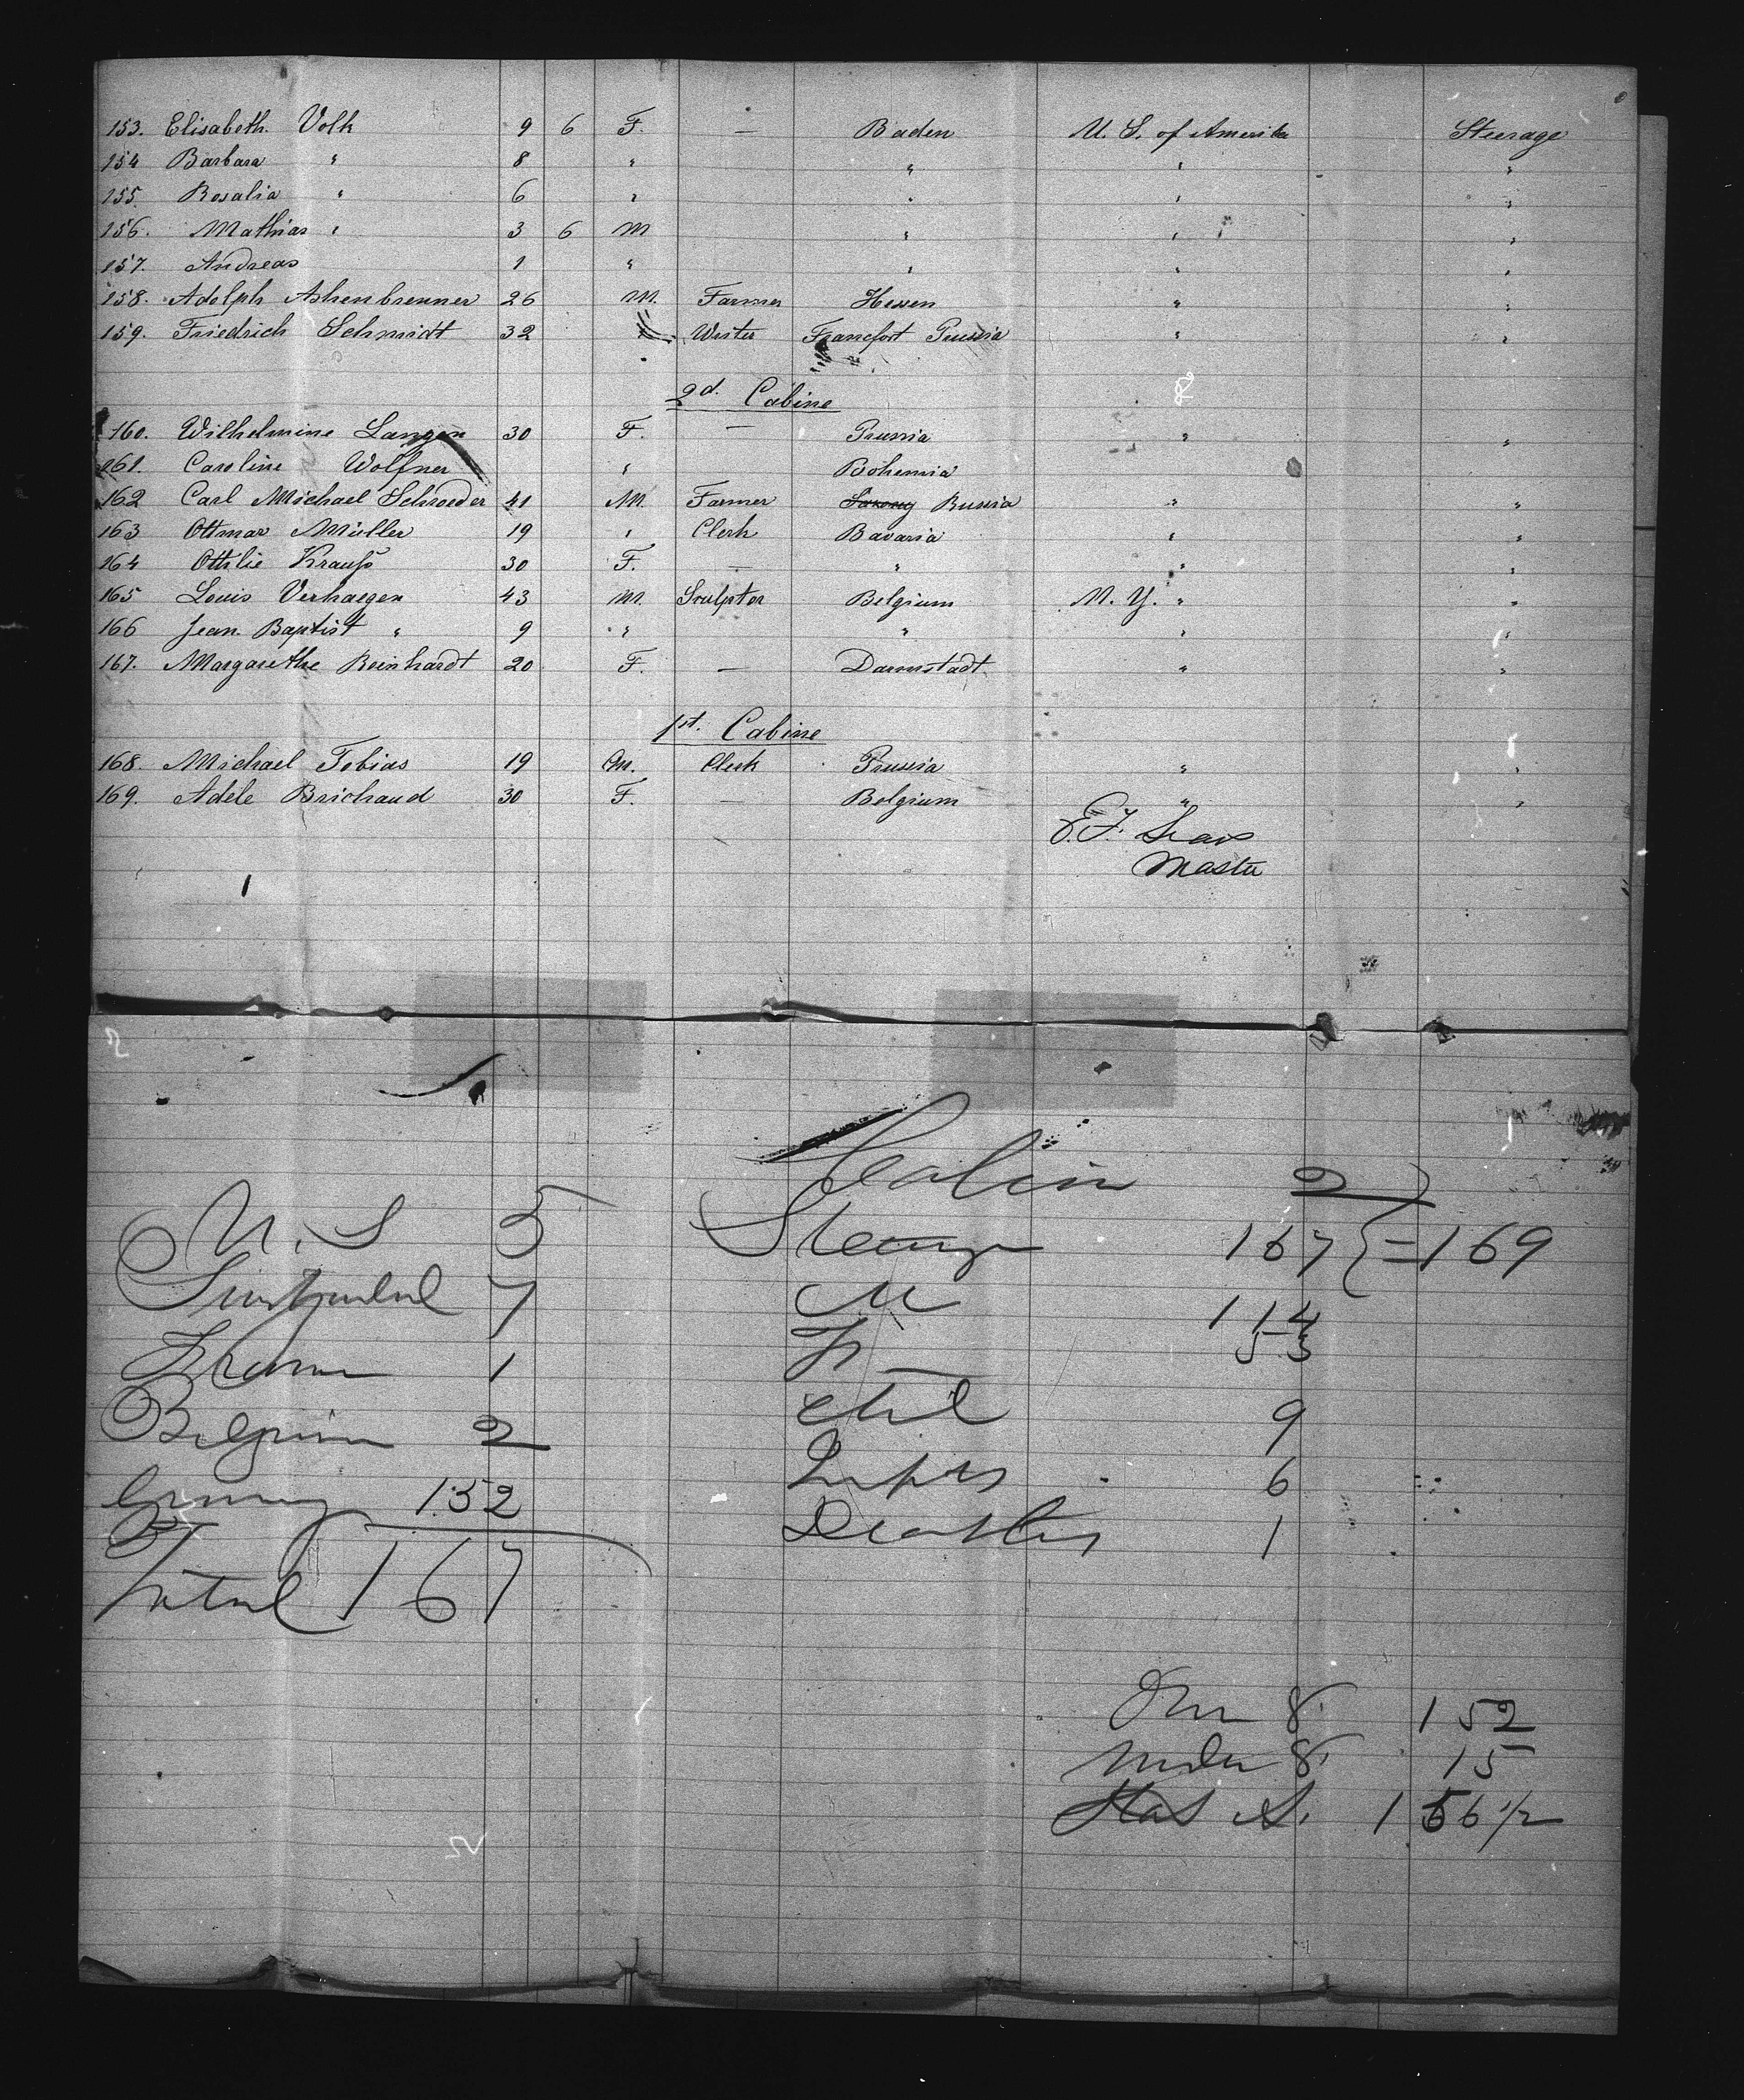 153. Elisabeth Volk 9 6 F. — Baden U. S. of Amerika Steerage
154 Barbara " 8 " " " "
155. Rosalia " 6 " " " "
156. Mathias " 3 6 M " " "
157. Andreas 1 " " " "
158. Adolph Ashenbrenner 26 M. Farmer Hessen " "
159. Friedrich Schmidt 32 Francfort Prussia " "
2d. Cabine
160. Wilhelmine Langen 30 F. — Prussia " "
161. Caroline Wolfner " Bohemia
162 Carl Michael Schroeder 41 M. Farmer Saxony Russia " "
163 Ottmar Müller 19 " Clerk Bavaria " "
164 Ottilie Krauß 30 F. — " " "
165 Louis Verhaegen 43 M. Sculptor Belgium N. Y. " "
166 Jean Baptist " 9 " " " "
167. Margarethe Reinhardt 20 F. — Darmstadt " "
1st. Cabine
168. Michael Tobias 19 M. Clerk Prussia " "
169. Adele Brichaud 30 F. — Belgium " "
E. F.
Master
Cabin 2
U. S 5 Steerage 167 } = 169
Switzerland 7 M 114
France 1 F 53
Belgium 2 Chil 9
Germany 152 Infts 6
Total 167 Deaths 1
Over 8. 152
Under 8. 15
Stat A. 156 1/2